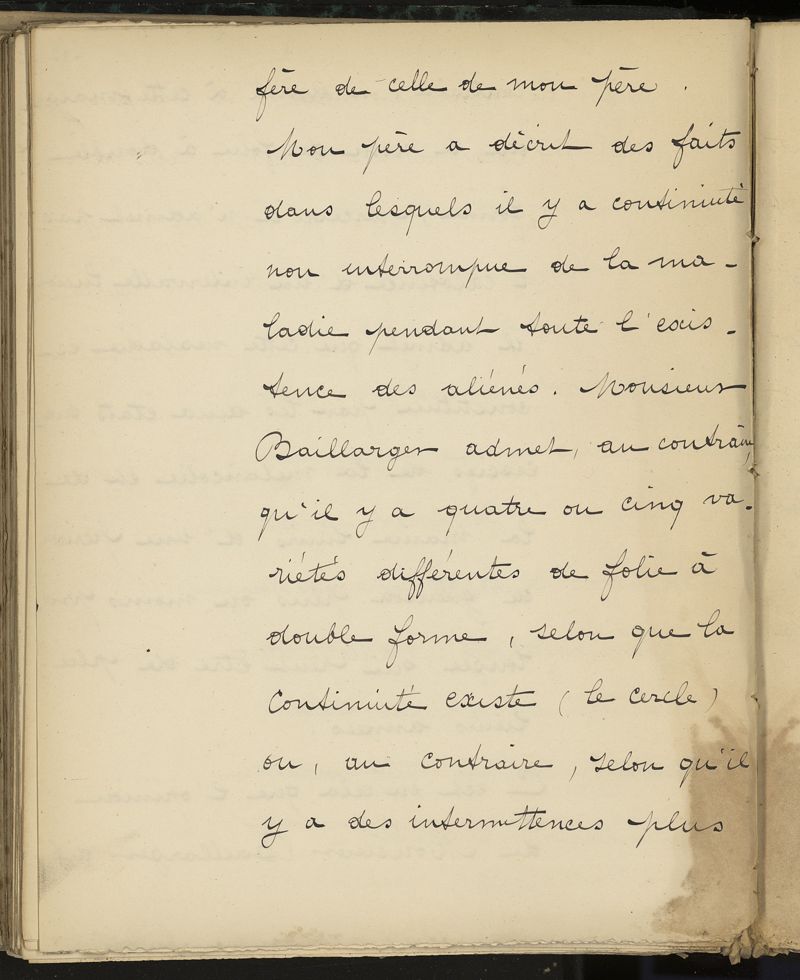 fère de celle de mon père.
Mon père a décrit des faits
dans lesquels il y a continuité
non interrompue de la ma-
ladie pendant toute l'exis-
tence des aliénés. Monsieur
Baillarger admet, au contraire,
qu'il y a quatre ou cinq va-
riétés différentes de folie à
double forme, selon que la
continuité existe (le cercle)
ou, au contraire, selon qu'il
y a des intermittences plus